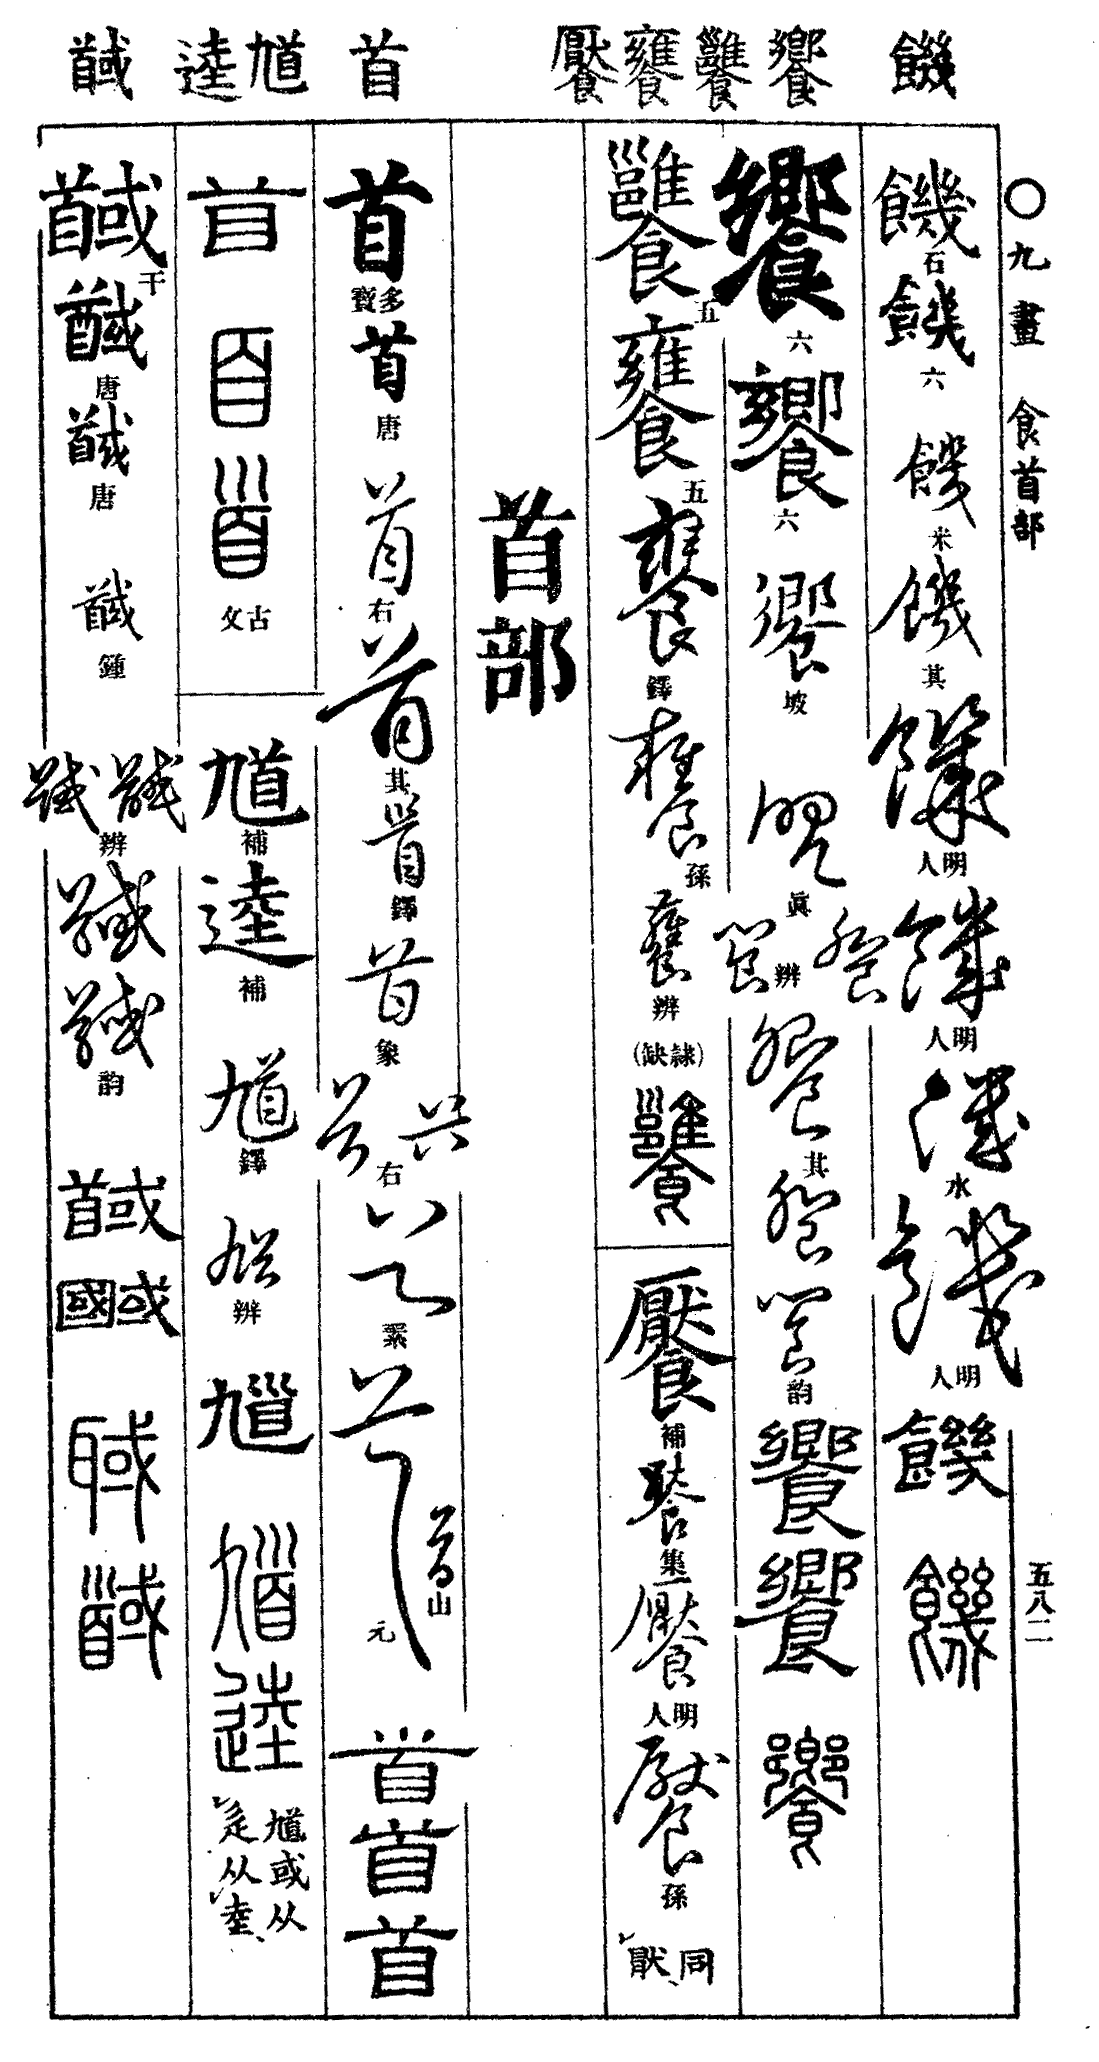 〇九畫 食首部
五八二
饑
饗
䨥 饔
首
馗 逵
馘
饑 石 饑 六 饑 米 饑 其 饑 明人 饑 明人 饑 水 饑 明人 饑 饑
饗 六 饗 六 饗 坡 饗 眞 饗 饗 辨 饗 其 饗 饗 韵 饗 饗 饗
饔 五 饔 五 饔 鐸 饔 孫 饔 辨 (隸缺) 饔
補 集 明人 孫 同猒
首部
首 多寶 首 唐 首 右 首 其 首 鐸 首 象 首 首 右 首 素 首 元 首 山 首 首 首
首 百 𩠐 古文
馗 補 逵 補 馗 鐸 馗 辨 馗 馗 逵 馗或从辵从坴
馘 干 馘 唐 馘 唐 馘 鍾 馘 馘 辨 馘 馘 韵 馘 馘 聝 馘